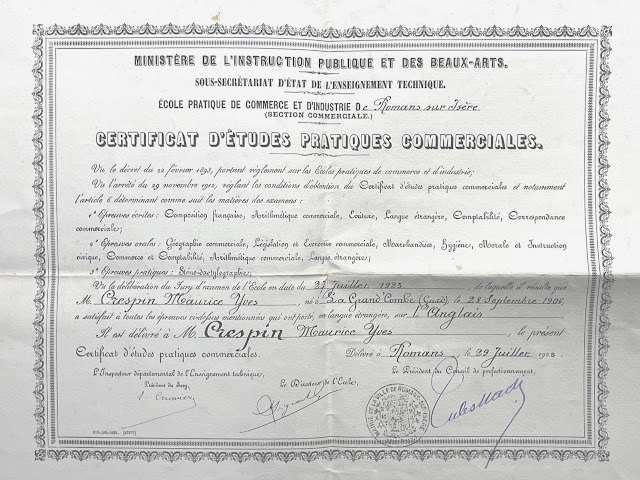 MINISTÈRE DE L'INSTRUCTION PUBLIQUE ET DES BEAUX-ARTS.
SOUS-SECRÉTARIAT D'ÉTAT DE L'ENSEIGNEMENT TECHNIQUE.
ÉCOLE PRATIQUE DE COMMERCE ET D'INDUSTRIE De Romans sur Isère
(SECTION COMMERCIALE.)
CERTIFICAT D'ÉTUDES PRATIQUES COMMERCIALES.
Vu le décret du 22 février 1893, portant règlement sur les Écoles pratiques de commerce et d'industrie;
Vu l'arrêté du 29 novembre 1912, réglant les conditions d'obtention du Certificat d'études pratiques commerciales et notamment
l'article 6 déterminant comme suit les matières des examens :
1° Épreuves écrites : Composition française, Arithmétique commerciale, Écriture, Langue étrangère, Comptabilité, Correspondance
commerciale;
2° Épreuves orales : Géographie commerciale, Législation et Économie commerciale, Marchandises, Hygiène, Morale et Instruction
civique, Commerce et Comptabilité, Arithmétique commerciale, Langue étrangère;
3° Épreuves pratiques : Sténo-dactylographie;
Vu la délibération du Jury d'examen de l'École en date du 27 Juillet 1923, de laquelle il résulte que
M. Crespin Maurice Yves, né à La Grand'Combe (Gard), le 28 Septembre 1906,
a satisfait à toutes les épreuves ci-dessus mentionnées qui ont porté, en langue étrangère, sur l'Anglais
Il est délivré à M. Crespin Maurice Yves, le présent
Certificat d'études pratiques commerciales.
Délivré à Romans, le 29 Juillet 1923.
L'Inspecteur départemental de l'Enseignement technique,
Président du Jury,
Le Directeur de l'École,
Le Président du Conseil de perfectionnement,